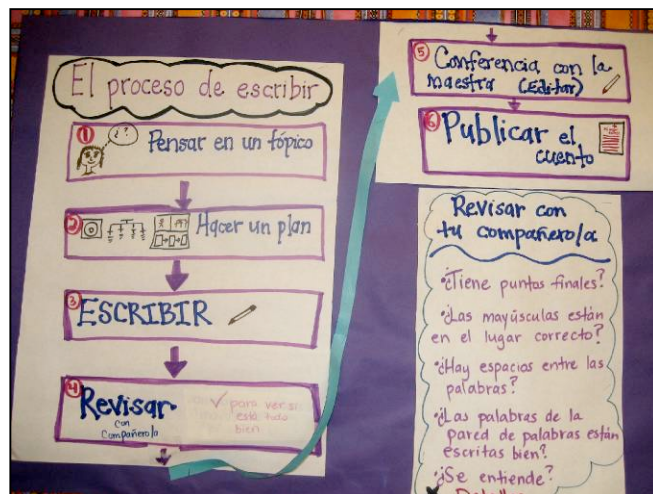 El proceso de escribir
1
¿?
Pensar en un tópico
2
Hacer un plan
3
ESCRIBIR
4
Revisar
con
Compañero/a
✓ para ver si
está todo
bien
5
Conferencia con la
maestra (Editar)
6
Publicar el
cuento
Revisar con
tu compañero/a
•¿Tiene puntos finales?
•¿Las mayúsculas están
en el lugar correcto?
•¿Hay espacios entre las
palabras?
•¿Las palabras de la
pared de palabras están
escritas bien?
•¿Se entiende?